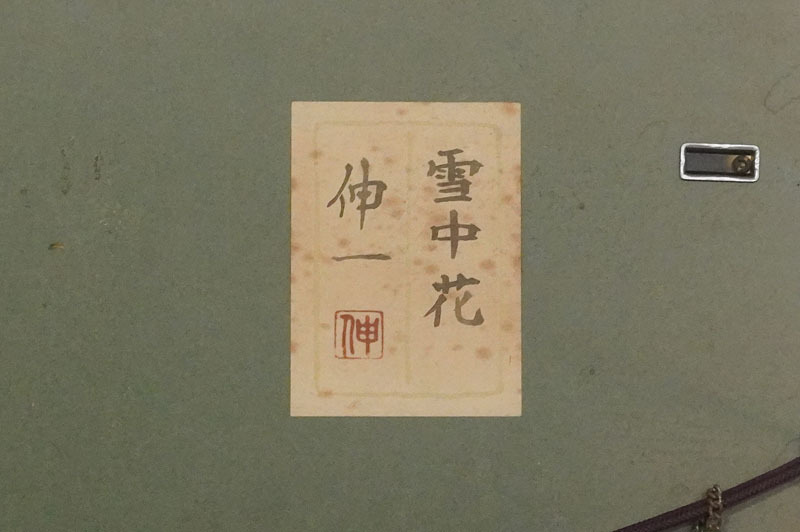 雪中花
伸一
伸